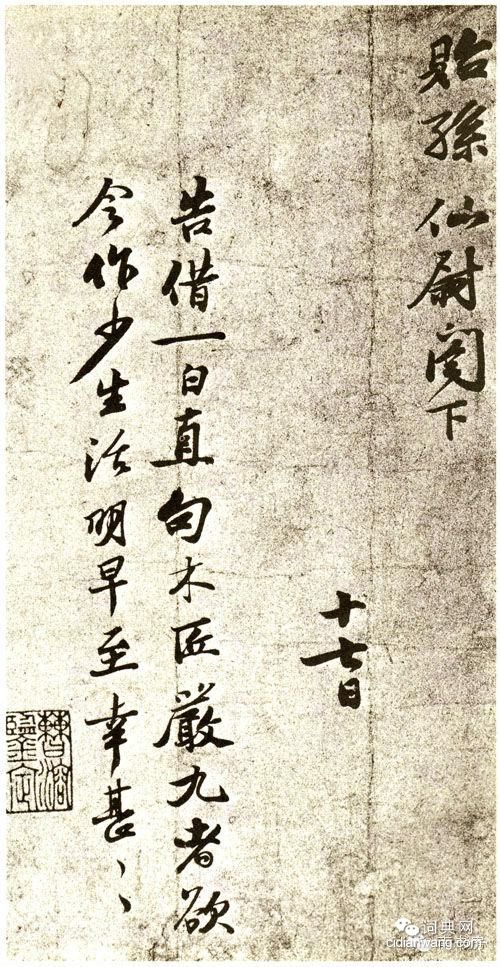 貽孫仙尉閣下
十七日
告借一白直句木匠嚴九者欲
令作少生活明早至幸甚〻
曹溶鑒定
词典网
cidianwang.com